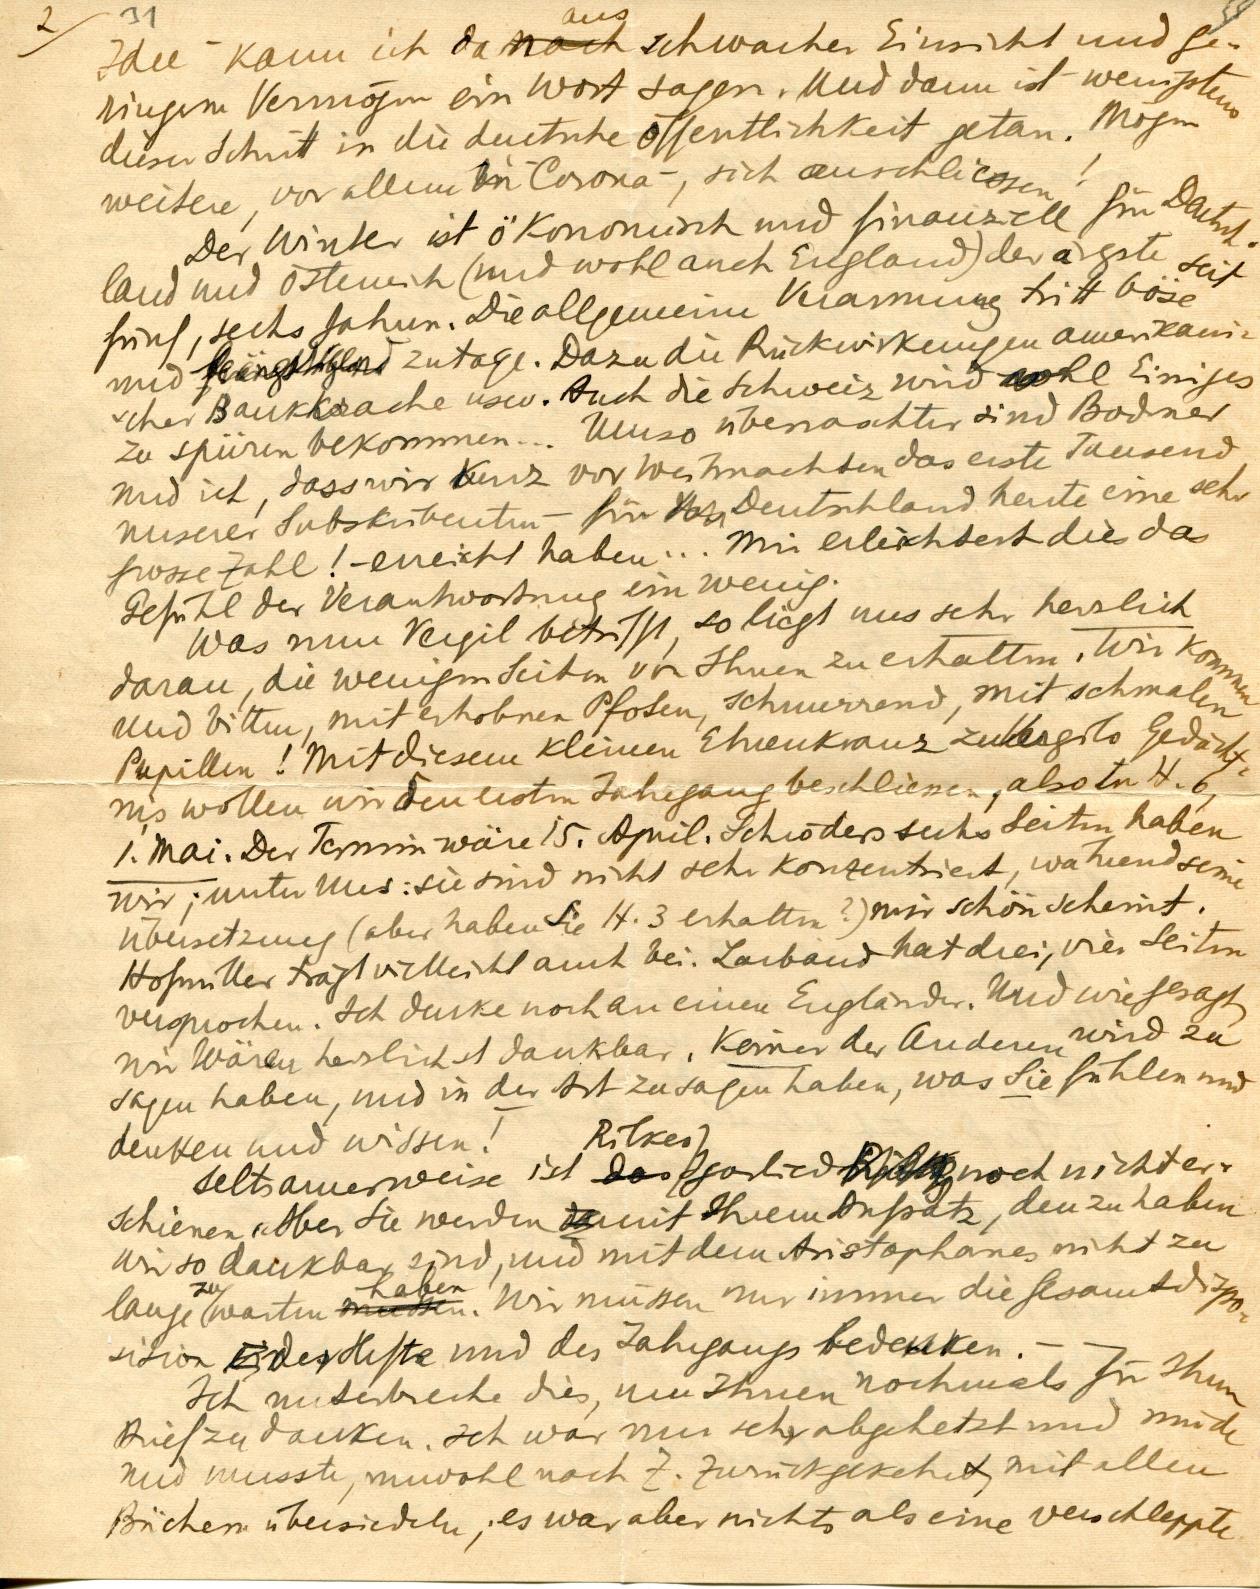 2 31
aus
Idee - kann ich da nach schwacher Einsicht und ge-
ringem Vermögen ein Wort sagen. Und dann ist wenigstens
dieser Schritt in die deutsche Öffentlichkeit getan. Mögen
weitere, vor allem in Corona -, sich anschliessen!
Der Winter ist ökonomisch und finanziell für Deutsch-
land und Österreich (und wohl auch England) der ärgste seit
fünf, sechs Jahren. Die allgemeine Verarmung tritt böse
und beängstigend zutage. Dazu die Rückwirkungen amerikani-
scher Bankkrache usw. Auch die Schweiz wird wohl Einiges
zu spüren bekommen... Umso überraschter sind Bodmer
und ich, dass wir kurz vor Weihnachten das erste Tausend
unserer Subskribenten - für Deutschland heute eine sehr
grosse Zahl! - erreicht haben... Mir erleichtert dies das
Gefühl der Verantwortung ein wenig.
Was nun Vergil betrifft, so liegt uns sehr herzlich
daran, die wenigen Seiten von Ihnen zu erhalten. Wir kommen
und bitten, mit erhobnen Pfoten, schnurrend, mit schmalen
Pupillen! Mit diesem kleinen Ehrenkranz zu Vergils Gedächt-
nis wollen wir den ersten Jahrgang beschliessen, also in H. 6,
1. Mai. Der Termin wäre 15. April. Schröders sechs Seiten haben
wir; unter uns: sie sind nicht sehr konzentriert, während seine
Übersetzung (aber haben Sie H. 3 erhalten?) mir schön scheint.
Hofmiller trägt vielleicht auch bei. Larbaud hat drei, vier Seiten
versprochen. Ich denke noch an einen Engländer. Und wie gesagt,
wir wären herzlichst dankbar. Keiner der Anderen wird zu
sagen haben, und in der Art zu sagen haben, was Sie fühlen und
denken und wissen!
Rilkes
Seltsamerweise ist das Igorlied noch nicht er-
schienen. Aber Sie werden damit Ihrem Aufsatz, den zu haben
wir so dankbar sind, und mit dem Aristophanes nicht zu
zu haben
lange warten müssen. Wir müssen nur immer die Gesamtdispo-
sition der Hefte und des Jahrgangs bedenken. -
Ich unterbreche dies, um Ihnen nochmals für Ihren
Brief zu danken. Ich war nur sehr abgehetzt und müde
und musste, unwohl nach Z. zurückgekehrt, mit allen
Büchern übersiedeln; es war aber nichts als eine verschleppte